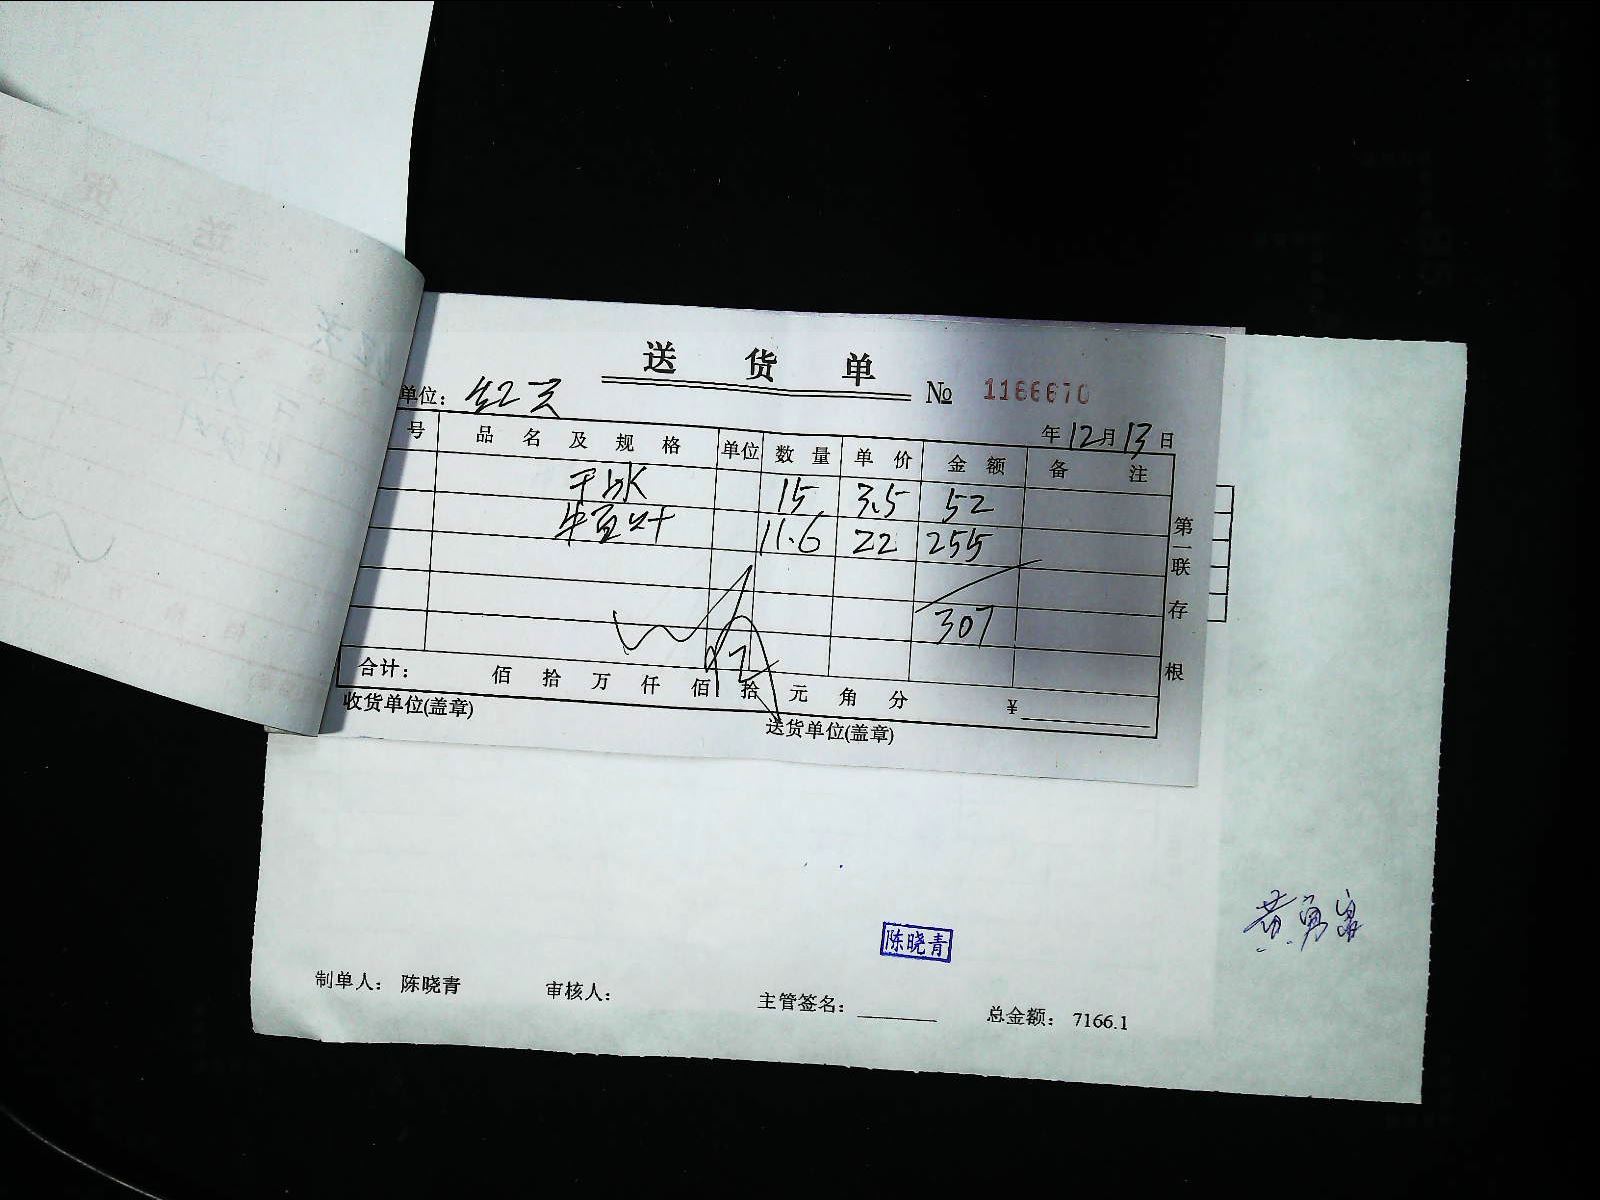 送 货 单
No 1166670
单位：红天
年12月13日
号 品 名 及 规 格 单位 数 量 单 价 金 额 备 注
干冰 15 3.5 52
11.6 22 255
307
合计： 佰 拾 万 仟 佰 拾 元 角 分 ¥
收货单位(盖章) 送货单位(盖章)
第一联 存根
陈晓青
黄勇富
制单人： 陈晓青 审核人： 主管签名： 总金额： 7166.1